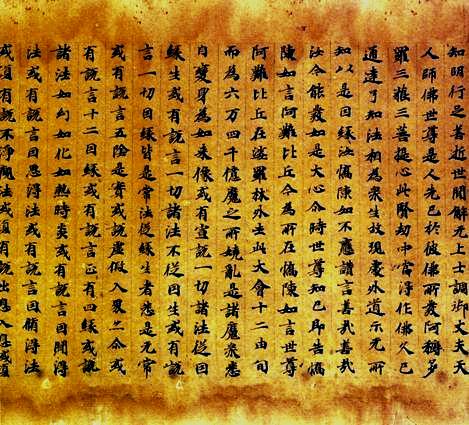 知明行足善逝世間解无上士調御丈夫天
人師佛世尊是人先已於彼佛所發阿耨多
羅三藐三菩提心此賢劫中當得作佛久已
通達了知法相為衆生故現處外道示无所
知以是因緣汝憍陳如不應讚言善哉善哉
汝今能發如是大心尒時世尊知已即告憍
陳如言阿難比丘今為所在憍陳如言世尊
阿難比丘在娑羅林外去此大會十二由旬
而為六万四千億魔之所嬈亂是諸魔衆悉
自變身為如來像或有宣說一切諸法從因
緣生或有說言一切諸法不從因生或有說
言一切因緣皆是常法從緣生者悉是无常
或有說言五陰是實或說虛假入界亦尒或
有說言十二因緣或有說言正有四緣或說
諸法如幻如化如熱時炎或有說言因聞得
法或有說言因思得法或有說言因脩得法
或復有說不淨觀法或復有說出息入息或復